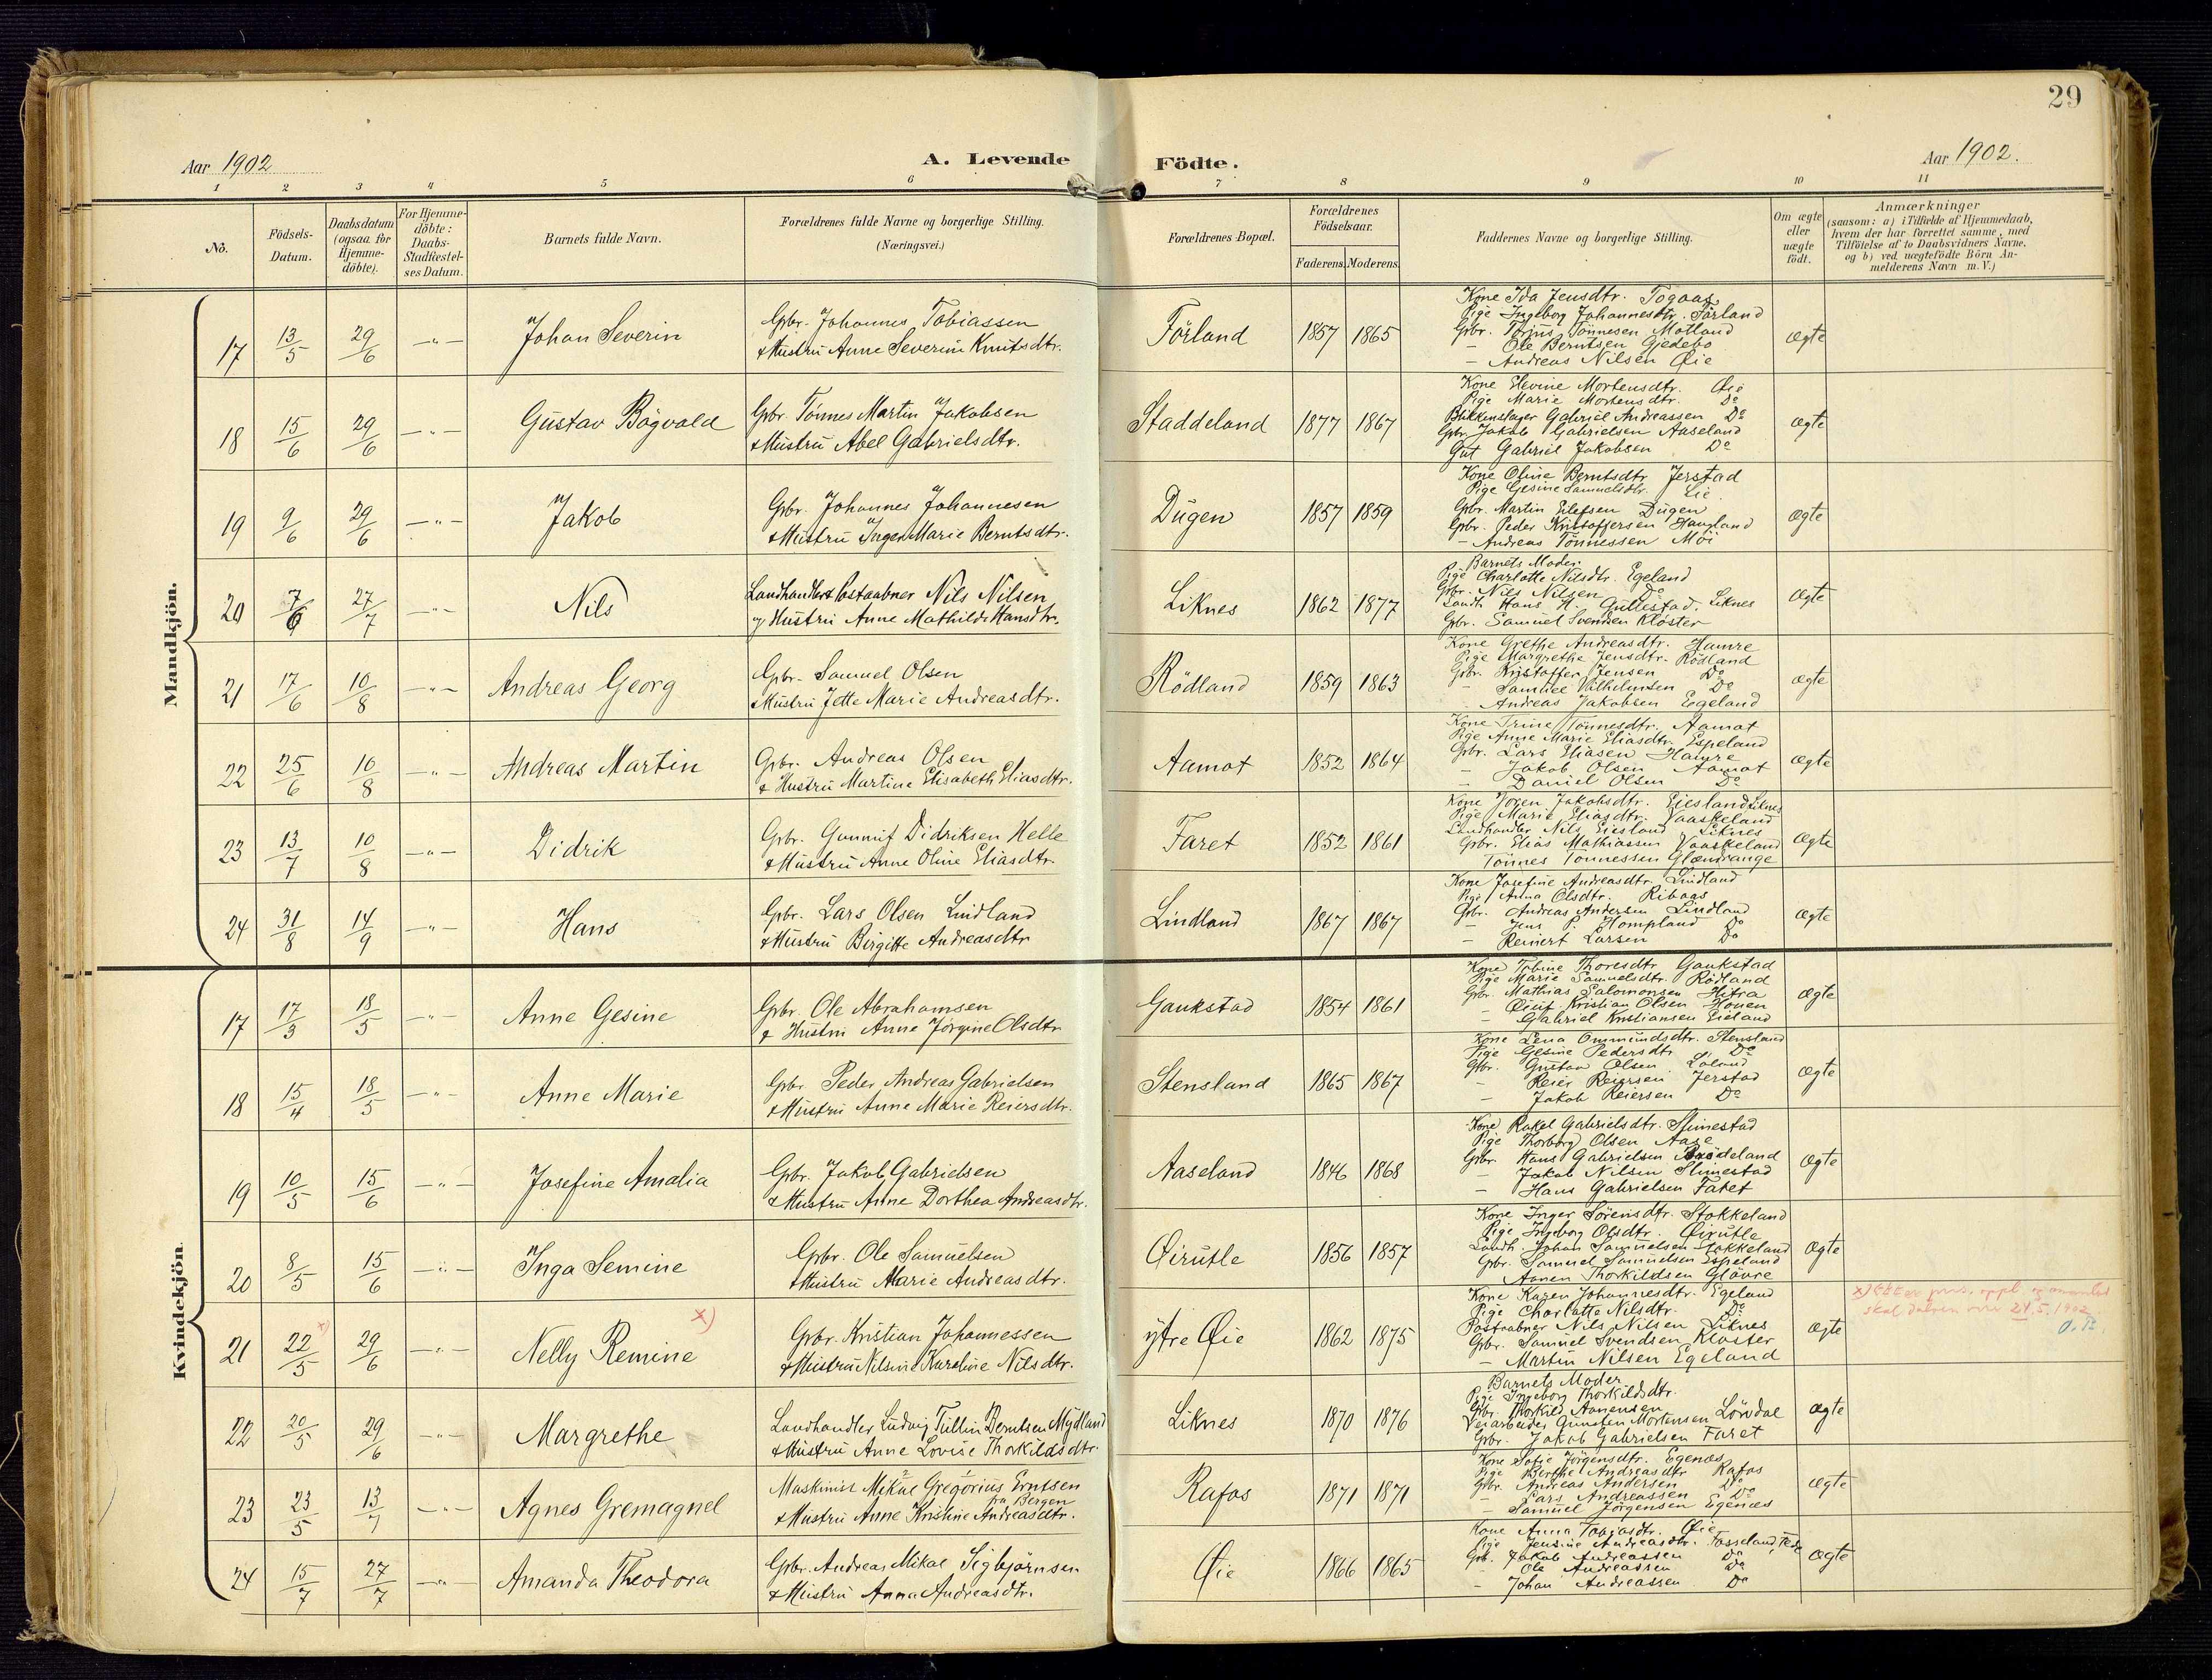 29
Aar 1902
A. Levende
Födte.
Aar 1902.
1 2 3 4 5 6 7 8 9 10 11
No.
Födsels-Datum.
Daabsdatum (ogsaa for Hjemme-döbte).
For Hjemme-döbte: Daabs-Stadfæstel-ses Datum.
Barnets fulde Navn.
Forældrenes fulde Navne og borgerlige Stilling. (Næringsvei.)
Forældrenes Bopæl.
Forældrenes Födselsaar.
Faderens. Moderens.
Faddernes Navne og borgerlige Stilling.
Om ægte eller uægte födt.
Anmærkninger
(saasom: a) i Tilfælde af Hjemmedaab,
hvem der har forrettet samme, med
Tilföielse af to Daabsvidners Navne.
og b) ved uægtefödte Börn An-
melderens Navn m. V.)
Mandkjön.
17 13/5 29/6 —"— Johan Severin
Gbr. Johannes Tobiassen
& Hustru Anne Severine Knutsdtr.
Förland 1857 1865
Kone Ida Jensdtr. Togaas
Pige Ingeborg Johannesdtr. Förland
Gbr. Torjus Tönnesen Motland
— Ole Berntsen Gjedebo
— Andreas Nilsen Øie
ægte
18 15/6 29/6 —"— Gustav Bögvald
Gbr. Tönnes Martin Jakobsen
& Hustru Abel Gabrielsdtr.
Staddeland 1877 1867
Kone Elevine Mortensdtr. Øie
Pige Marie Mortensdtr. Do
Blikkenslager Gabriel Andreassen Do
Gbr. Jakob Gabrielsen Aaseland
Gut Gabriel Jakobsen Do
ægte
19 9/6 29/6 —"— Jakob
Gbr. Johannes Johannesen
& Hustru Inger Marie Berntsdtr.
Dugen 1857 1859
Kone Oline Berntsdtr Jerstad
Pige Gesine Samuelsdtr. Lie
Gbr. Martin Eilefsen Dugen
Gbr. Peder Kristoffersen Haugland
— Andreas Tönnessen Möi
ægte
20 7/6 27/7 —"— Nils
Landhandler & Postaabner Nils Nilsen
og Hustru Anne Mathilde Hansdtr.
Liknes 1862 1877
Barnets Moder.
Pige Charlotte Nilsdtr. Egeland
Gbr. Nils Nilsen Do
Landh. Hans H. Gullestad. Liknes
Gbr. Samuel Svendsen Kloster
ægte
21 17/6 10/8 —"— Andreas Georg
Gbr. Samuel Olsen
& Hustru Jette Marie Andreasdtr.
Rödland 1859 1863
Kone Grethe Andreasdtr. Hamre
Pige Margrethe Jensdtr. Rödland
Gbr. Kristoffer Jensen Do
— Samuel Vilhelmsen Do
— Andreas Jakobsen Egeland
ægte
22 25/6 10/8 —"— Andreas Martin
Gbr. Andreas Olsen
& Hustru Martine Elisabeth Eliasdtr.
Aamot 1852 1864
Kone Trine Tönnesdtr. Aamot
Pige Anne Marie Eliasdtr. Espeland
Gbr. Lars Eliasen Hamre
— Jakob Olsen Aamot
— Daniel Olsen Do
ægte
23 13/7 10/8 —"— Didrik
Gbr. Gunnuf Didriksen Helle
& Hustru Anne Oline Eliasdtr.
Faret 1852 1861
Kone Joren Jakobsdtr. Eiesland Liknes
Pige Marie Eliasdtr. Vaaskeland
Landhandler Nils Eiesland Liknes
Gbr. Elias Mathiassen Vaaskeland
Tönnes Tönnessen Glendrange
ægte
24 31/8 14/9 —"— Hans
Gbr. Lars Olsen Lindland
& Hustru Birgitte Andreasdtr
Lindland 1867 1867
Kone Josefine Andreasdtr. Lindland
Pige Anna Olsdtr. Ribaas
Gbr. Andreas Andersen Lindland
— Jens P. Hompland Do
— Reinert Larsen Do
ægte
Kvindekjön.
17 17/3 18/5 —"— Anne Gesine
Gbr. Ole Abrahamsen
& Hustru Anne Jörgine Olsdtr
Gaukstad 1854 1861
Kone Tobine Thoresdtr Gaukstad
Pige Marie Samuelsdtr. Rödland
Gbr. Mathias Salomonsen Hitra
— Kristian Olsen Houen
— Gabriel Kristiansen Eieland
ægte
18 15/4 18/5 —"— Anne Marie
Gbr. Peder Andreas Gabrielsen
& Hustru Anne Marie Reiersdtr.
Stensland 1865 1867
Kone Lena Ommundsdtr. Stensland
Pige Gesine Pedersdtr Do
Gbr. Gustav Olsen Loland
— Reier Reiersen Jerstad
— Jakob Reiersen Do
ægte
19 10/5 15/6 —"— Josefine Amalia
Gbr. Jakob Gabrielsen
& Hustru Anne Dorthea Andreasdtr.
Aaseland 1846 1868
Kone Rakel Gabrielsdtr. Slimestad
Pige Thorborg Olsen Aase
Gbr. Hans Gabrielsen
— Jakob Nilsen Slimestad
— Hans Gabrielsen Faret
ægte
20 8/5 15/6 —"— Inga Semine
Gbr. Ole Samuelsen
& Hustru Marie Andreasdtr.
Øirutle 1856 1857
Kone Inger Sörensdtr. Stokkeland
Pige Ingeborg Olsdtr. Øirutle
Landh. Johan Samuelsen Stokkeland
Gbr. Samuel Samuelsen Espeland
Aanen Thorkildsen Glövre
ægte
21 22/5 x) 29/6 —"— Nelly Remine x)
Gbr. Kristian Johannessen
& Hustru Nilsine Karoline Nilsdtr.
ytre Øie 1862 1875
Kone Karen Johannesdtr. Egeland
Pige Charlotte Nilsdtr. Do
Postaabner Nils Nilsen Liknes
Gbr. Samuel Svendsen Kloster
— Martin Nilsen Egeland
ægte
x) skal datoen være 21.5.1902.
22 20/5 29/6 —"— Margrethe
Landhandler Ludvig Tullin Berntsen Mydland
& Hustru Anne Lovise Thorkildsdtr.
Liknes 1870 1876
Barnets Moder
Pige Ingeborg Thorkildsdtr.
Gbr. Thorkild Aanensen
Veiarbeider Gunsten Mortensen Lövdal
Gbr. Jakob Gabrielsen Faret
ægte
23 23/5 13/7 —"— Agnes Gremagnel
Maskinist Mikal Gregorius Erntsen
fra Bergen
& Hustru Anne Kristine Andreasdtr.
Rafos 1871 1871
Kone Sofie Jörgensdtr. Egenæs
Pige Berthe Andreasdtr Rafos
Gbr. Andreas Andersen Do
— Lars Andreassen Do
— Samuel Jörgensen Egenæs
ægte
24 15/7 27/7 —"— Amanda Theodora
Gbr. Andreas Mikal Sigbjörnsen
& Hustru Anna Andreasdtr.
Øie 1866 1865
Kone Anna Tobiasdtr. Øie
Pige Jensine Andreasdtr. Fosseland,
Gbr. Jakob Andreassen Do
— Ole Andreassen Do
— Johan Andreassen Do
ægte